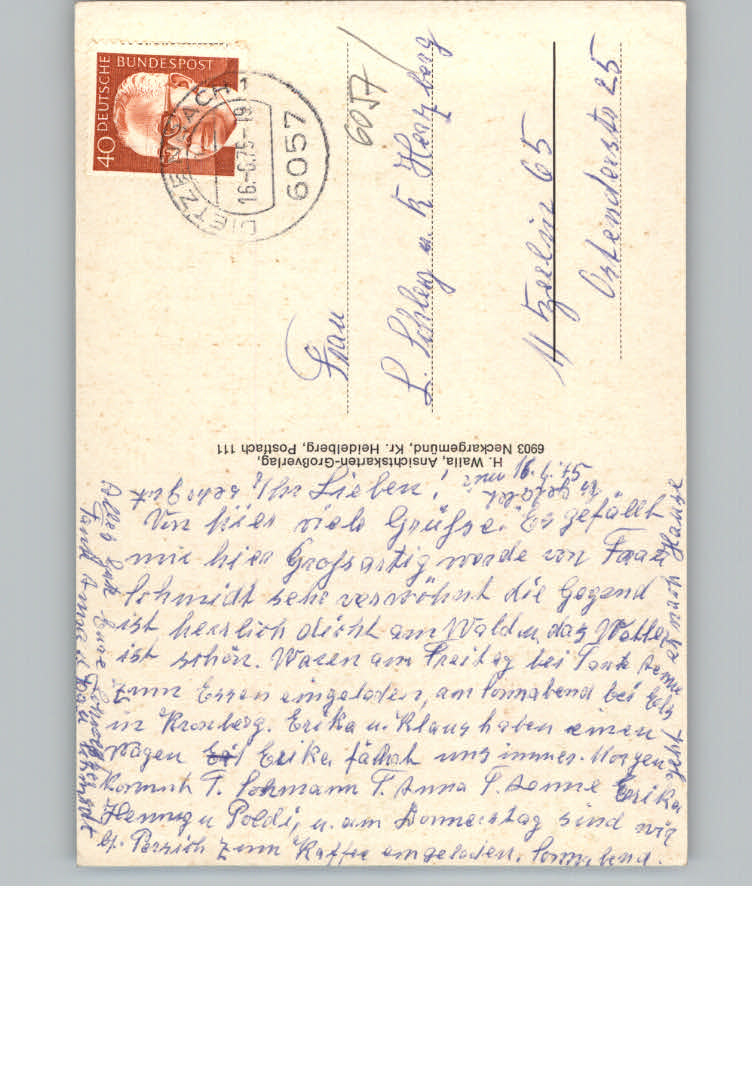 DEUTSCHE BUNDESPOST
40
DIETZENBACH 1
16.-6.75-19
6057
6057
Frau
L. u. K. Herzberg
1 Berlin 65
Ostenderstr 25
H. Walla, Ansichtskarten-Großverlag,
6903 Neckargemünd, Kr. Heidelberg, Postfach 111
Ihr Lieben!
Von hier viele Grüße. Es gefällt
mir hier Großartig werde von Frau
Schmidt sehr verwöhnt die Gegend
ist herrlich dicht am Wald u. das Wetter
ist schön. Waren am Freitag bei Tante Aenne
zum Essen eingeladen, am Sonnabend bei
in Kronberg. Erika u. Klaus haben einen
Wagen Erika fährt uns immer. Morgen
kommt T. Lohmann T. Anna T. Aenne Erika
Henny u Poldi, u. am Donnerstag sind wir
b. Persich zum Kaffee eingeladen. Sonnabend
geht es nach Hause
Alles Gute Eure
Tante u. Frau Schmidt